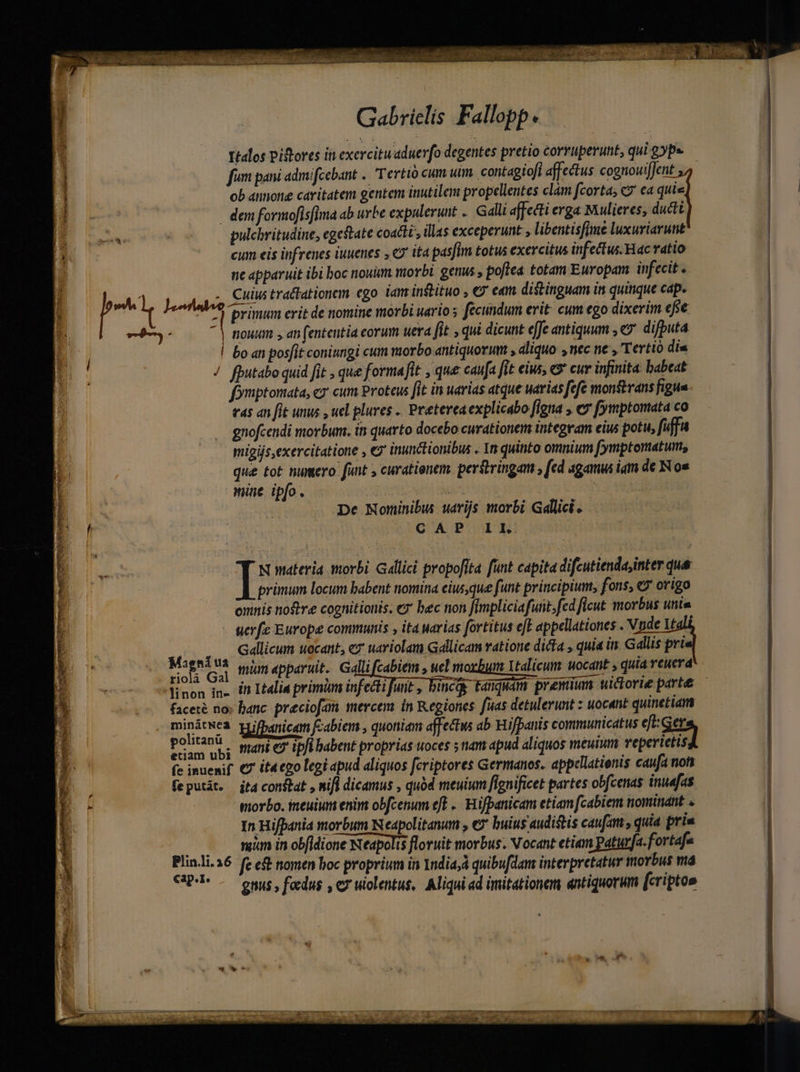 Gabrielis Fallopp.
Italos Piſtores in exercitu aduerſo degentes pretio corruperunt, qui gypſ-
ſum pani admiſcebant. Tertiò cum uim contagioſi affectus cognouiſſent,
ob annonæ caritatem gentem inutilem propellentes clàm ſcorta, & ea qui-
dem formoſiſſima ab urbe expulerunt. Galli affecti erga Mulieres, ducti
pulchritudine, egeſtate coacti, illas exceperunt, libentiſſimè luxuriarunt
cum eis infrenes iuuenes, & ita paſſim totus exercitus infectus. Hac ratio
ne apparuit ibi hoc nouum morbi genus, poſtea totam Europam infecit.
Cuius tractationem ego iam inſtituo, & eam diſtinguam in quinque cap.
primum erit de nomine morbi uario; ſecundum erit cum ego dixerim eſſe
nouum, an ſententia eorum uera ſit, qui dicunt eſſe antiquum, & diſputa
bo an poſſit coniungi cum morbo antiquorum, aliquo, nec ne, Tertiò diſ-
ſputabo quid ſit, quæ forma ſit, quæ cauſa ſit eius, & cur infinita habeat
ſymptomata, & cum Proteus ſit in uarias atque uarias ſeſe monſtrans figu-
ras an ſit unus, uel plures. Præterea explicabo ſigna, & ſymptomata co
gnoſcendi morbum. in quarto docebo curationem integram eius potu, ſuffu
migijs, exercitatione, & inunctionibus. In quinto omnium ſymptomatum,
quæ tot numero ſunt, curationem perſtringam, ſed agamus iam de No-
mine ipſo.
De Nominibus uarijs morbi Gallici.
CAP. II.
IN materia morbi Gallici propoſita ſunt capita diſcutienda, inter quæ
primum locum habent nomina eius, quæ ſunt principium, fons, & origo
omnis noſtræ cognitionis. & hæc non ſimplicia ſunt, ſed ſicut morbus uni-
uerſæ Europæ communis, ita uarias ſortitus eſt appellationes. Vnde Itali
Gallicum uocant, & uariolam Gallicam ratione dicta, quia in Gallis pri-
mùm apparuit. Galli ſcabiem, uel morbum Italicum uocant, quia reuera
in Italia primùm infecti ſunt, hincq; tanquàm præmium uictoriæ partæ
hanc precioſam mercem in Regiones ſuas detulerunt: uocant quinetiam
Hiſpanicam ſcabiem, quoniam affectus ab Hiſpanis communicatus eſt: Ger-
mani & ipſi habent proprias uoces; nam apud aliquos meuium reperietis,
& ita ego legi apud aliquos ſcriptores Germanos. appellationis cauſa non
ita conſtat, niſi dicamus, quòd meuium ſignificet partes obſcenas inuaſas
morbo. meuium enim obſcenum eſt. Hiſpanicam etiam ſcabiem nominant.
In Hiſpania morbum Neapolitanum, & huius audiſtis cauſam, quia pri-
mùm in obſidione Neapolis floruit morbus. Vocant etiam Paturſa. fortaſ-
ſe eſt nomen hoc proprium in India, à quibuſdam interpretatur morbus ma
gnus, fœdus, & uiolentus. Aliqui ad imitationem antiquorum ſcripto-
Magni ua
riola Gal
linon in-
facetè no-
minãt Nea
politanũ
etiam ubi
ſe inuenіſ
ſe putãt.
Plin.li.26
cap.1.